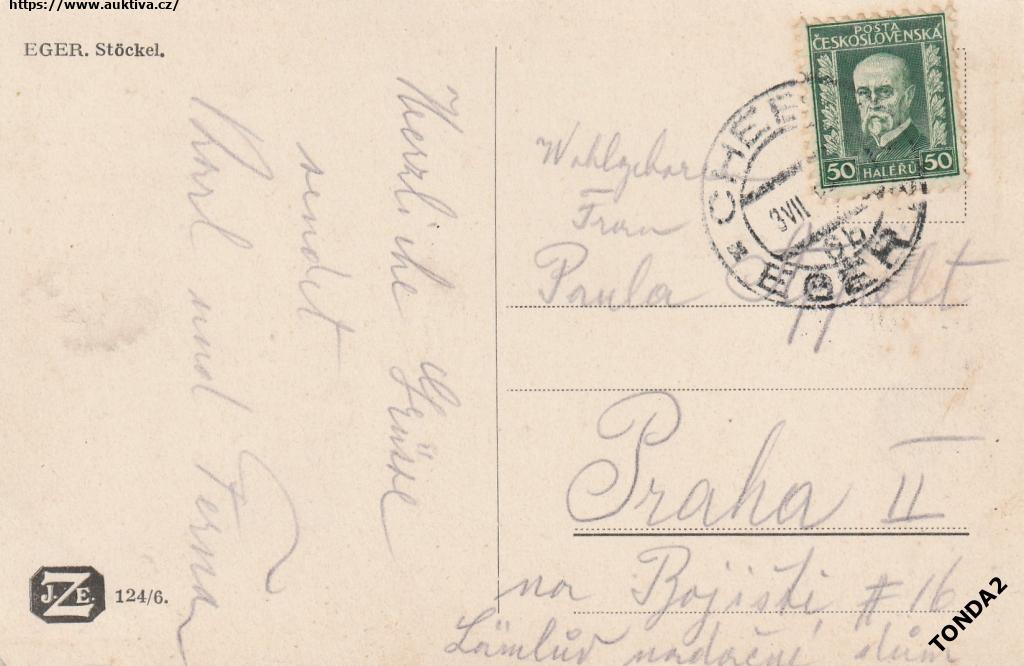 https://www.auktiva.cz/
EGER. Stöckel.
Herzliche Grüsse
sendet
Karl und
J.Z.E. 124/6.
POŠTA
ČESKOSLOVENSKÁ
50 HALÉŘŮ 50
CHEB
3 VII
EGER
Wohlgeboren
Frau
Paula
Praha II
na Bojišti, # 16
nadační dům
TONDA2